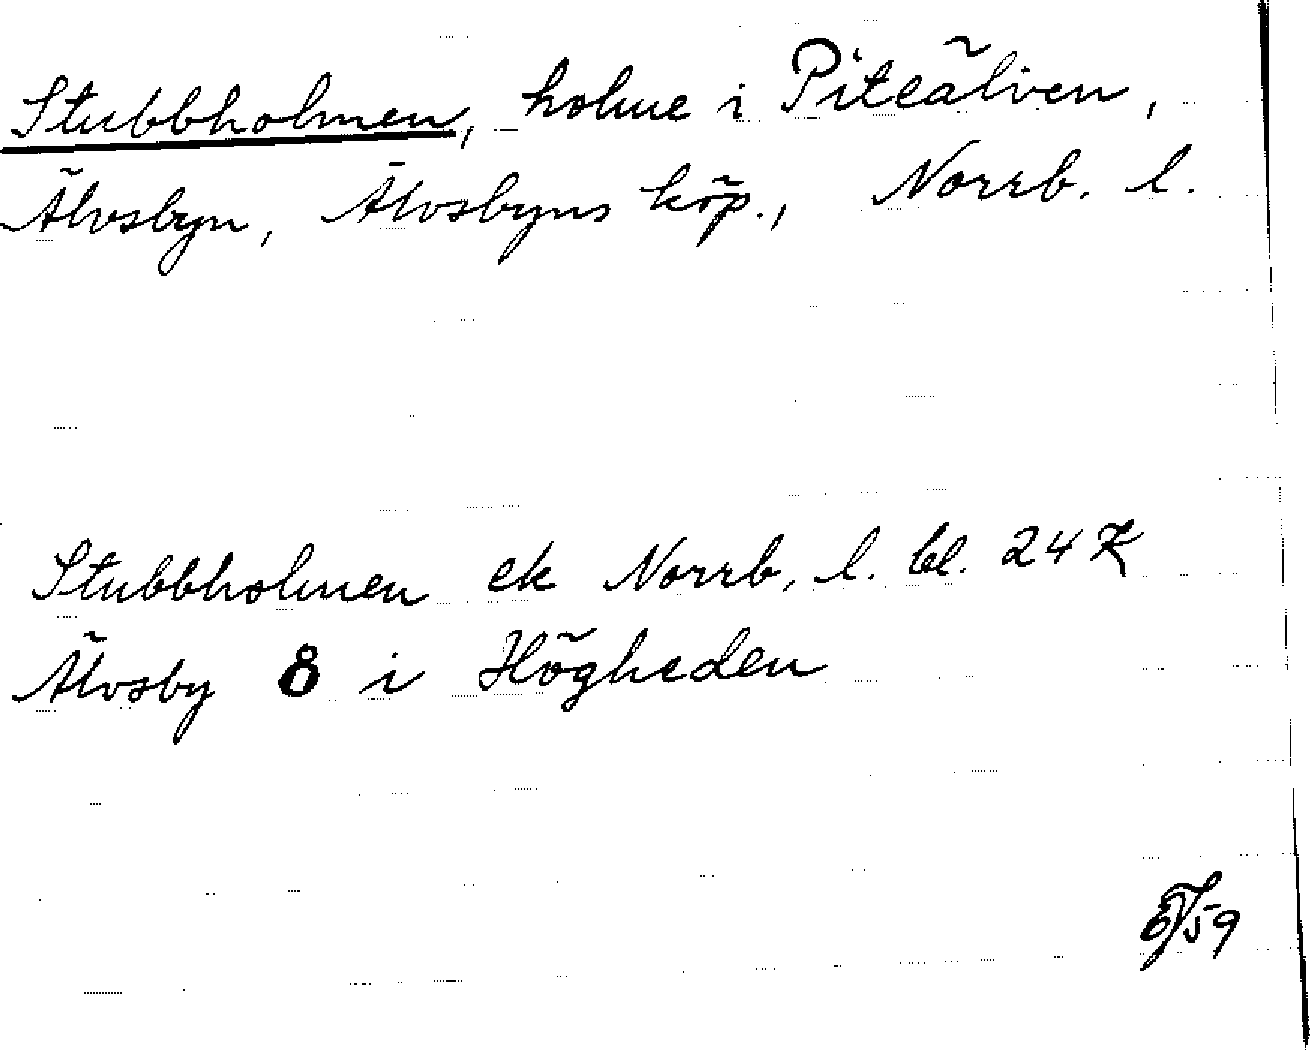 Stubbholmen, holme i Piteälven,
Älvsbyn, Älvsbyns köp., Norrb. l.
Stubbholmen ek Norrb. l. bl. 24 K
Älvsby 8 i Högheden